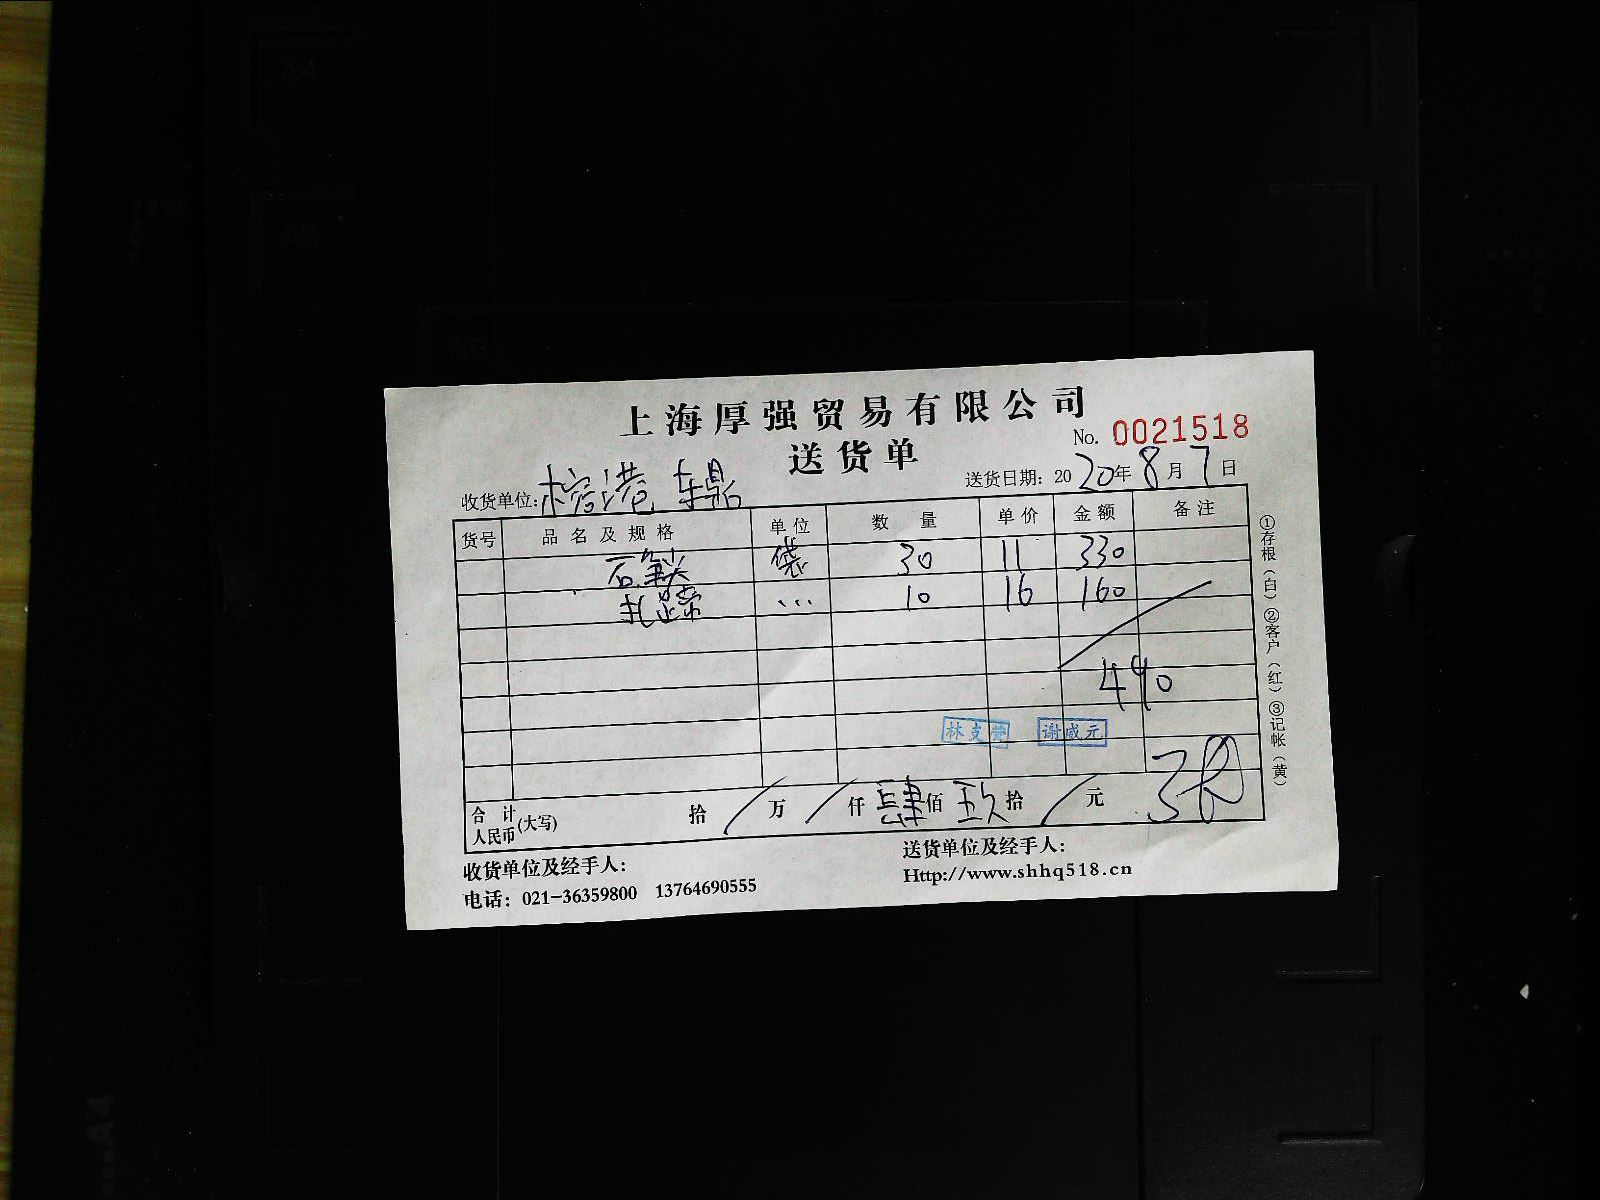 上海厚强贸易有限公司
No. 0021518
送货单
送货日期: 2020年8月7日
收货单位:
货号 品名及规格 单位 数量 单价 金额 备注
石笔 袋 30 11 330
扎带 ... 10 16 160
490
林克 谢咸元
合计人民币(大写) 拾 / 万 / 仟 肆佰 玖拾 / 元
收货单位及经手人:
送货单位及经手人:
电话: 021-36359800 13764690555
Http://www.shhq518.cn
①存根(白) ②客户(红) ③记帐(黄)
A4
A5
A4